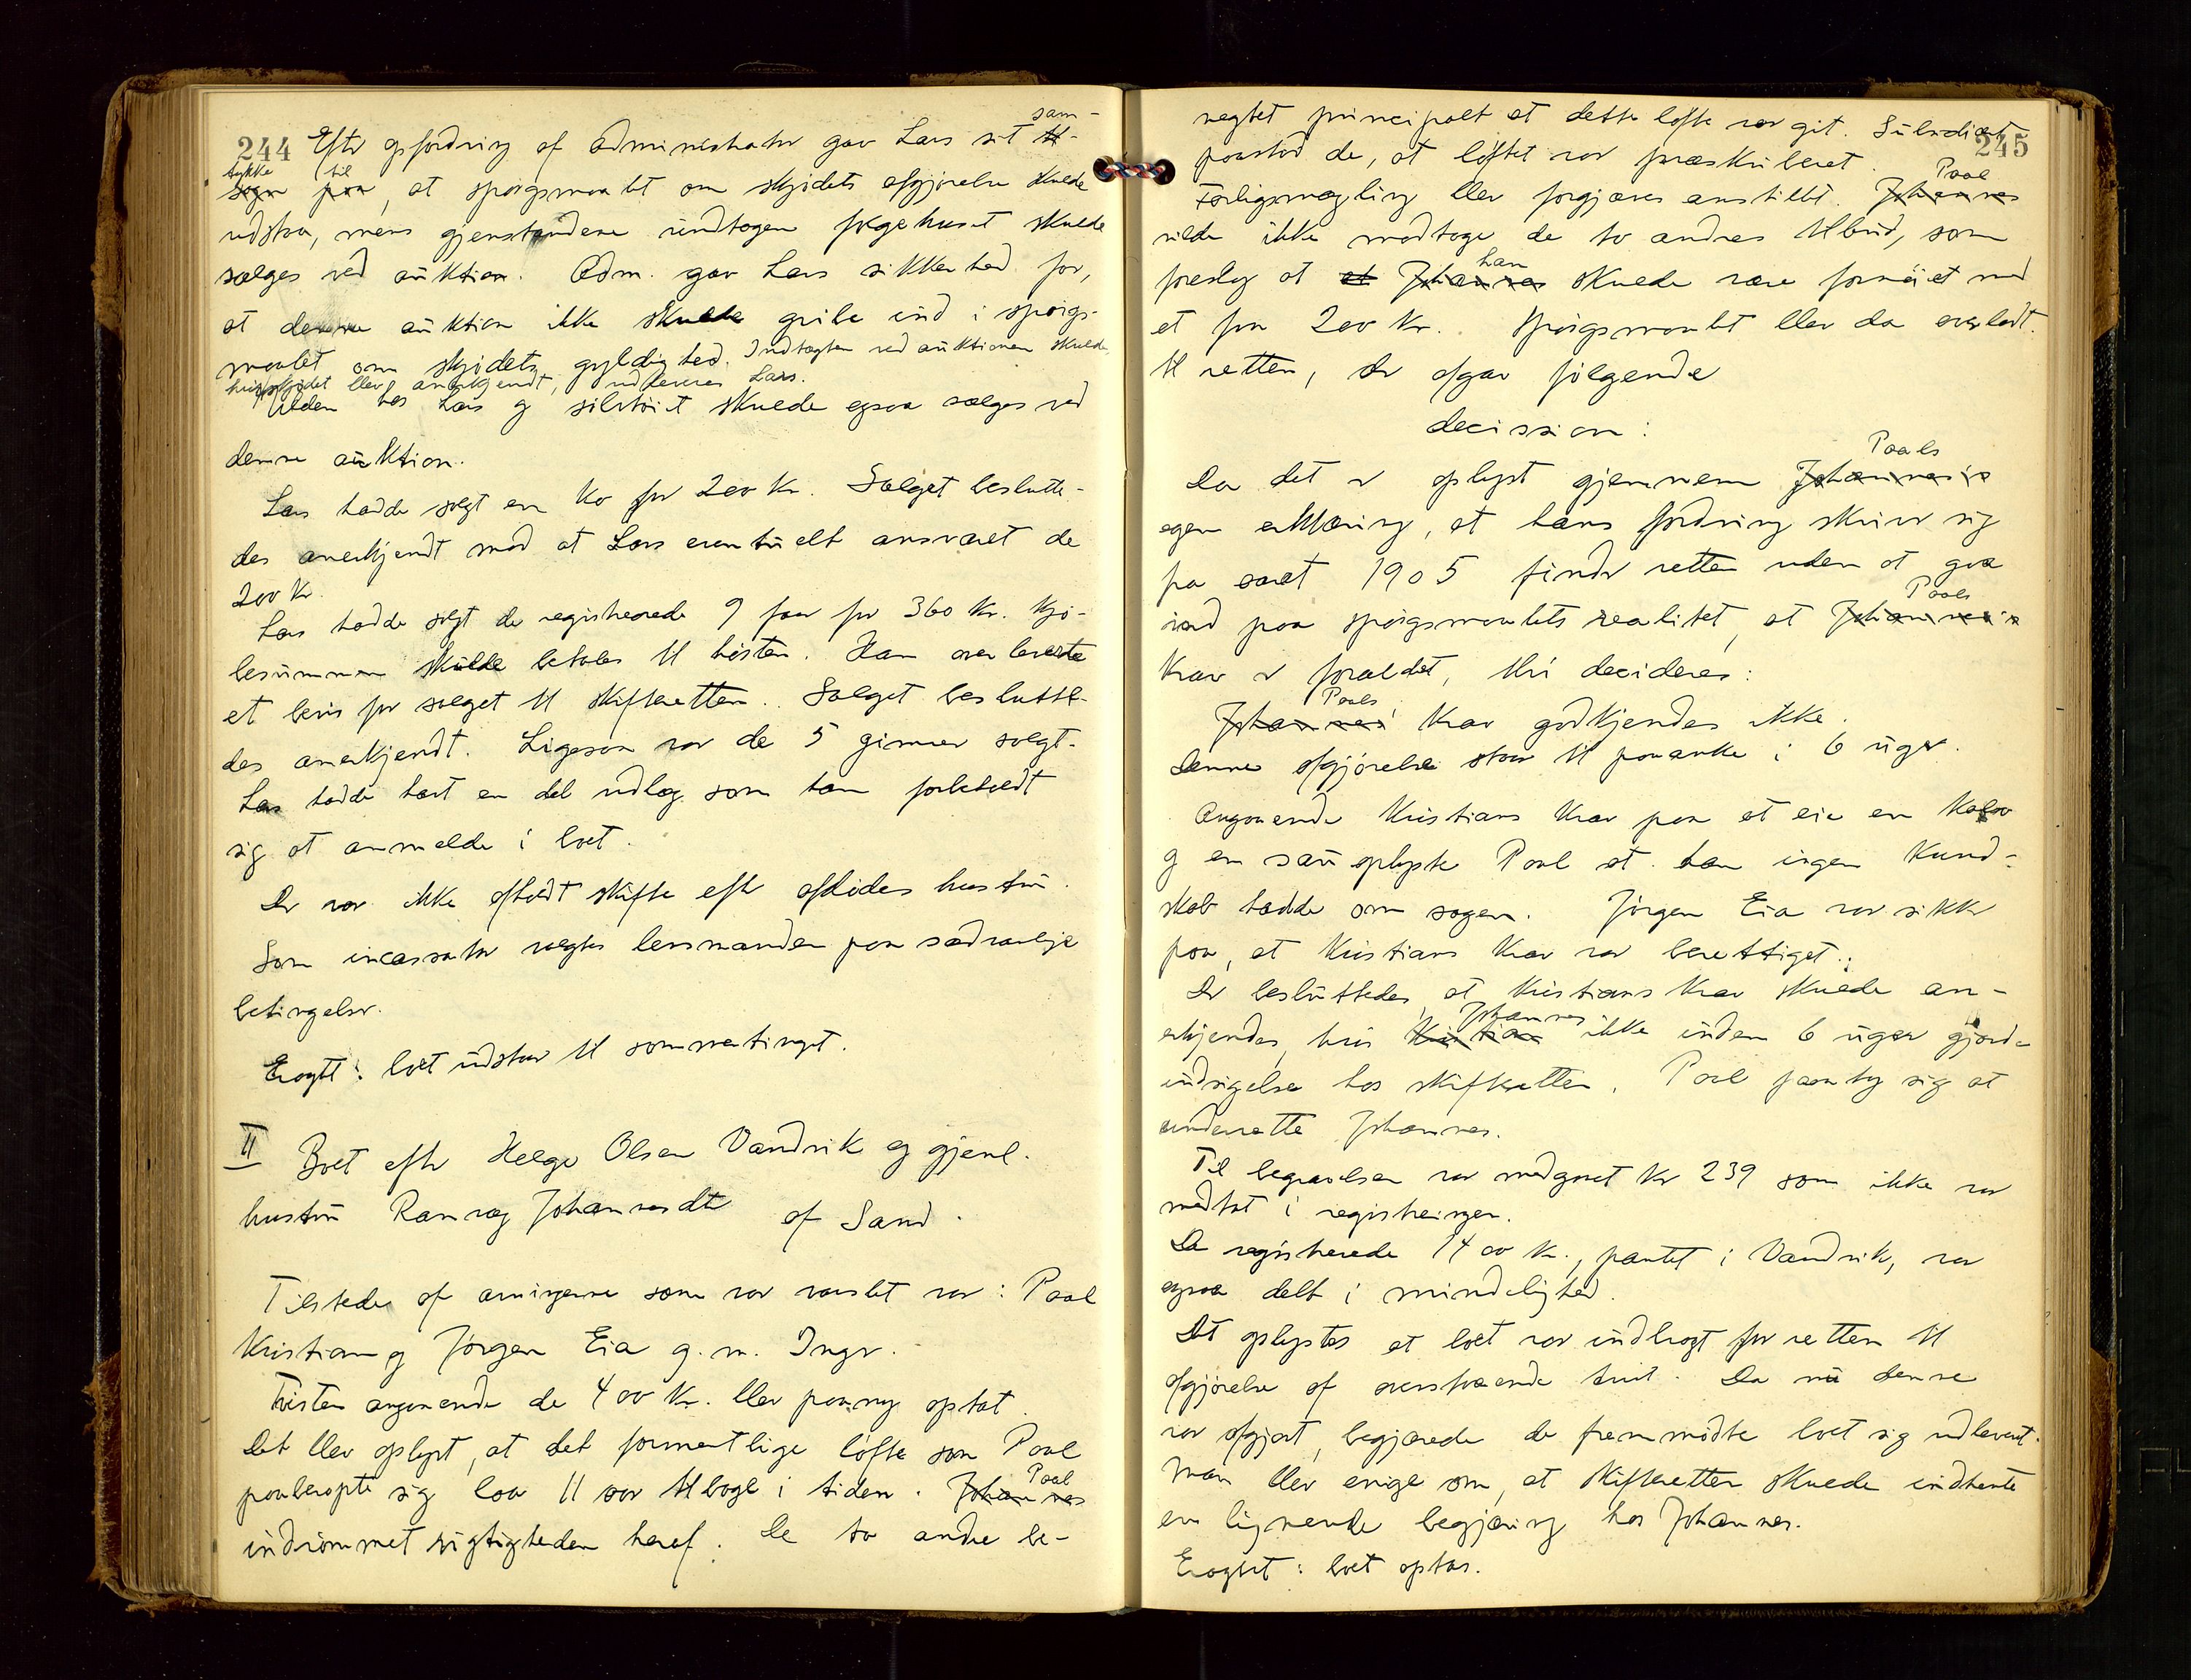 244
Efter opfordring af administrator gav Lars sit sam-
tykke til, at spørgsmaalet om skjødets afgjørelse skulde
udstaa, mens gjenstandene undtagen føgehuset skulde
sælges ved auktion. Adm. gav Lars sikkerhed for,
at denne auktion ikke skulde gribe ind i spørgs-
maalet om skjødets gyldighed. Indtægten ved auktionen skulde,
hvis skjødet blev anerkjendt, udleveres Lars.
Ulden hos Lars og sølvtøiet skulde ogsaa sælges ved
denne auktion.
Lars hadde solgt en ko for 200 kr. Salget beslutte-
des anerkjendt mod at Lars eventuelt ansvaret de
200 kr.
Lars hadde solgt de registrerede 9 faar for 360 kr. Kjø-
besummen skulde betales til høsten. Han overleverte
et bevis for salget til skifteretten. Salget beslutte-
des anerkjendt. Ligesaa var de 5 gimrer solgt.
Lars hadde havt en del udlæg som han forbeholdt
sig at anmelde i boet.
Der var ikke afholdt skifte efter afdødes hustru.
Som incassator valgtes lensmanden paa sædvanlige
betingelser.
Eragtt: boet udstaar til sommertinget.
II Boet efter Helge Olsen Vandvik og gjenl.
hustru Ranveg Johannesdtr af Sand.
Tilstede af arvingerne som var varslet var: Paal
Kristian og Jørgen Eia g. m. Ingr.
Tvisten angaaende de 400 kr. blev paany optat.
Det blev oplyst, at det formentlige løfte som Paal
paaberopte sig laa 11 aar tilbage i tiden. Johannes Paal
indrømmet rigtigheden heraf. De to andre be-
245
negtet principalt at dette løfte var git. Subsidiært
paastod de, at løftet var præskriberet.
Forligsmægling blev forgjæves anstillet. Johannes Paal
vilde ikke modtage de to andres tilbud, som
foreslog at et Johannes han skulde være fornøiet med
at faa 200 kr. Spørgsmaalet blev da overladt
til retten, der afgav følgende
decission:
Da det er oplyst gjennem Johannes's Paals
egen erklæring, at hans fordring skriver sig
fra aaret 1905 finder retten uden at gaa
ind paa spørgsmaalets realitet, at Johannes's Paals
krav er forældet, thi decideres:
Johannes' Paals krav godkjendes ikke.
Denne afgjørelse staar til paaanke i 6 uger.
Angaaende Kristians krav paa at eie en kalv
og en sau oplyste Paal at han ingen kund-
skab hadde om sagen. Jørgen Eia var sikker
paa, at Kristians krav var berettiget.
Der besluttedes at Kristians krav skulde an-
erkjendes, hvis Kristian Johannes ikke inden 6 uger gjorde
indsigelse hos skifteretten. Paal paatog sig at
underrette Johannes.
Til begravelsen var medgaaet kr 239 som ikke var
medtat i registreringen.
De registrerede 1400 kr., pantet i Vandvik, var
ogsaa delt i mindelighed.
Det oplystes at boet var indbragt for retten til
afgjørelse af ovenstaaende tvist. Da nu denne
var afgjort, begjærede de fremmødte boet sig udleveret.
Man blev enige om, at skifteretten skulde indhente
en lignende begjæring hos Johannes.
Eragtet: boet optas.